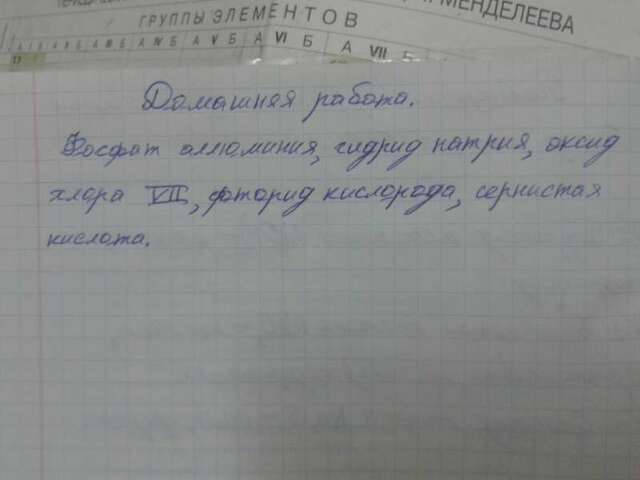 МЕНДЕЛЕЕВА
ГРУППЫ ЭЛЕМЕНТОВ
А V Б А VI Б А VII Б
Домашняя работа.
Фосфат аллюминия, гидрид натрия, оксид
хлора VII, фторид кислорода, сернистая
кислота.